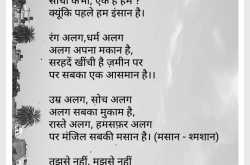 सोचा कभी, एक है हम ?
क्यूंकि पहले हम इंसान है।
रंग अलग,धर्म अलग
अलग अपना मकान है,
सरहदें खींची है ज़मीन पर
पर सबका एक आसमान है।।
उम्र अलग, सोच अलग
अलग सबका मुकाम है,
रास्ते अलग, हमसफ़र अलग
पर मंजिल सबकी मसान है। (मसान - श्मशान)
तुझसे नहीं, मुझसे नहीं